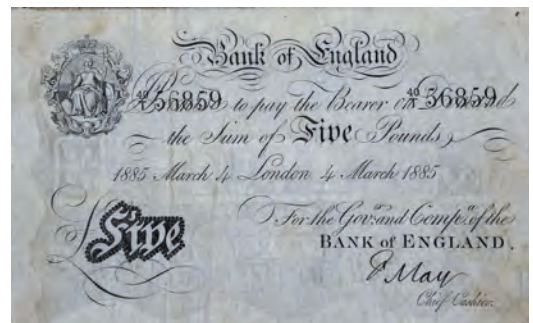 Bank of England
40/X 56859 to pay the Bearer on 40/X 56859
the Sum of Five Pounds
1885 March 4 London 4 March 1885
For the Govr. and Compa. of the
BANK of ENGLAND.
£Five
F May
Chief Cashier.